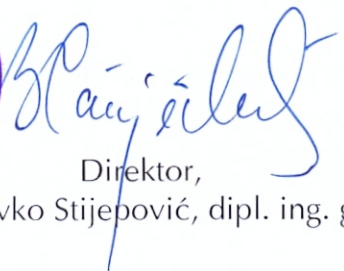 Direktor,
vko Stijepović, dipl. ing. g